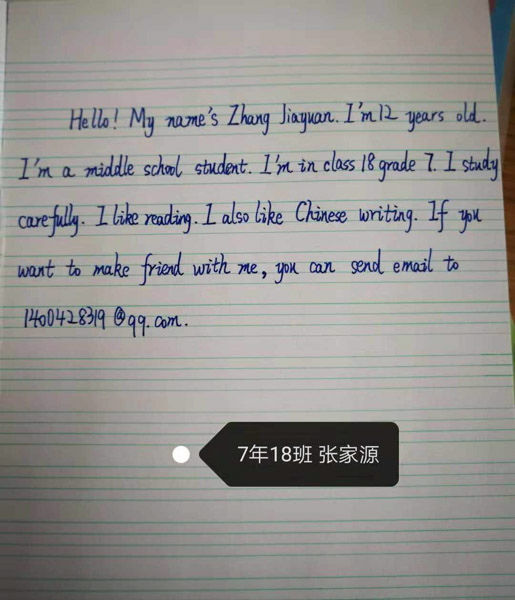 Hello! My name's Zhang Jiayuan. I'm 12 years old.
I'm a middle school student. I'm in class 18 grade 7. I study
carefully. I like reading. I also like Chinese writing. If you
want to make friend with me, you can send email to
1400428319@qq.com.
7年18班 张家源